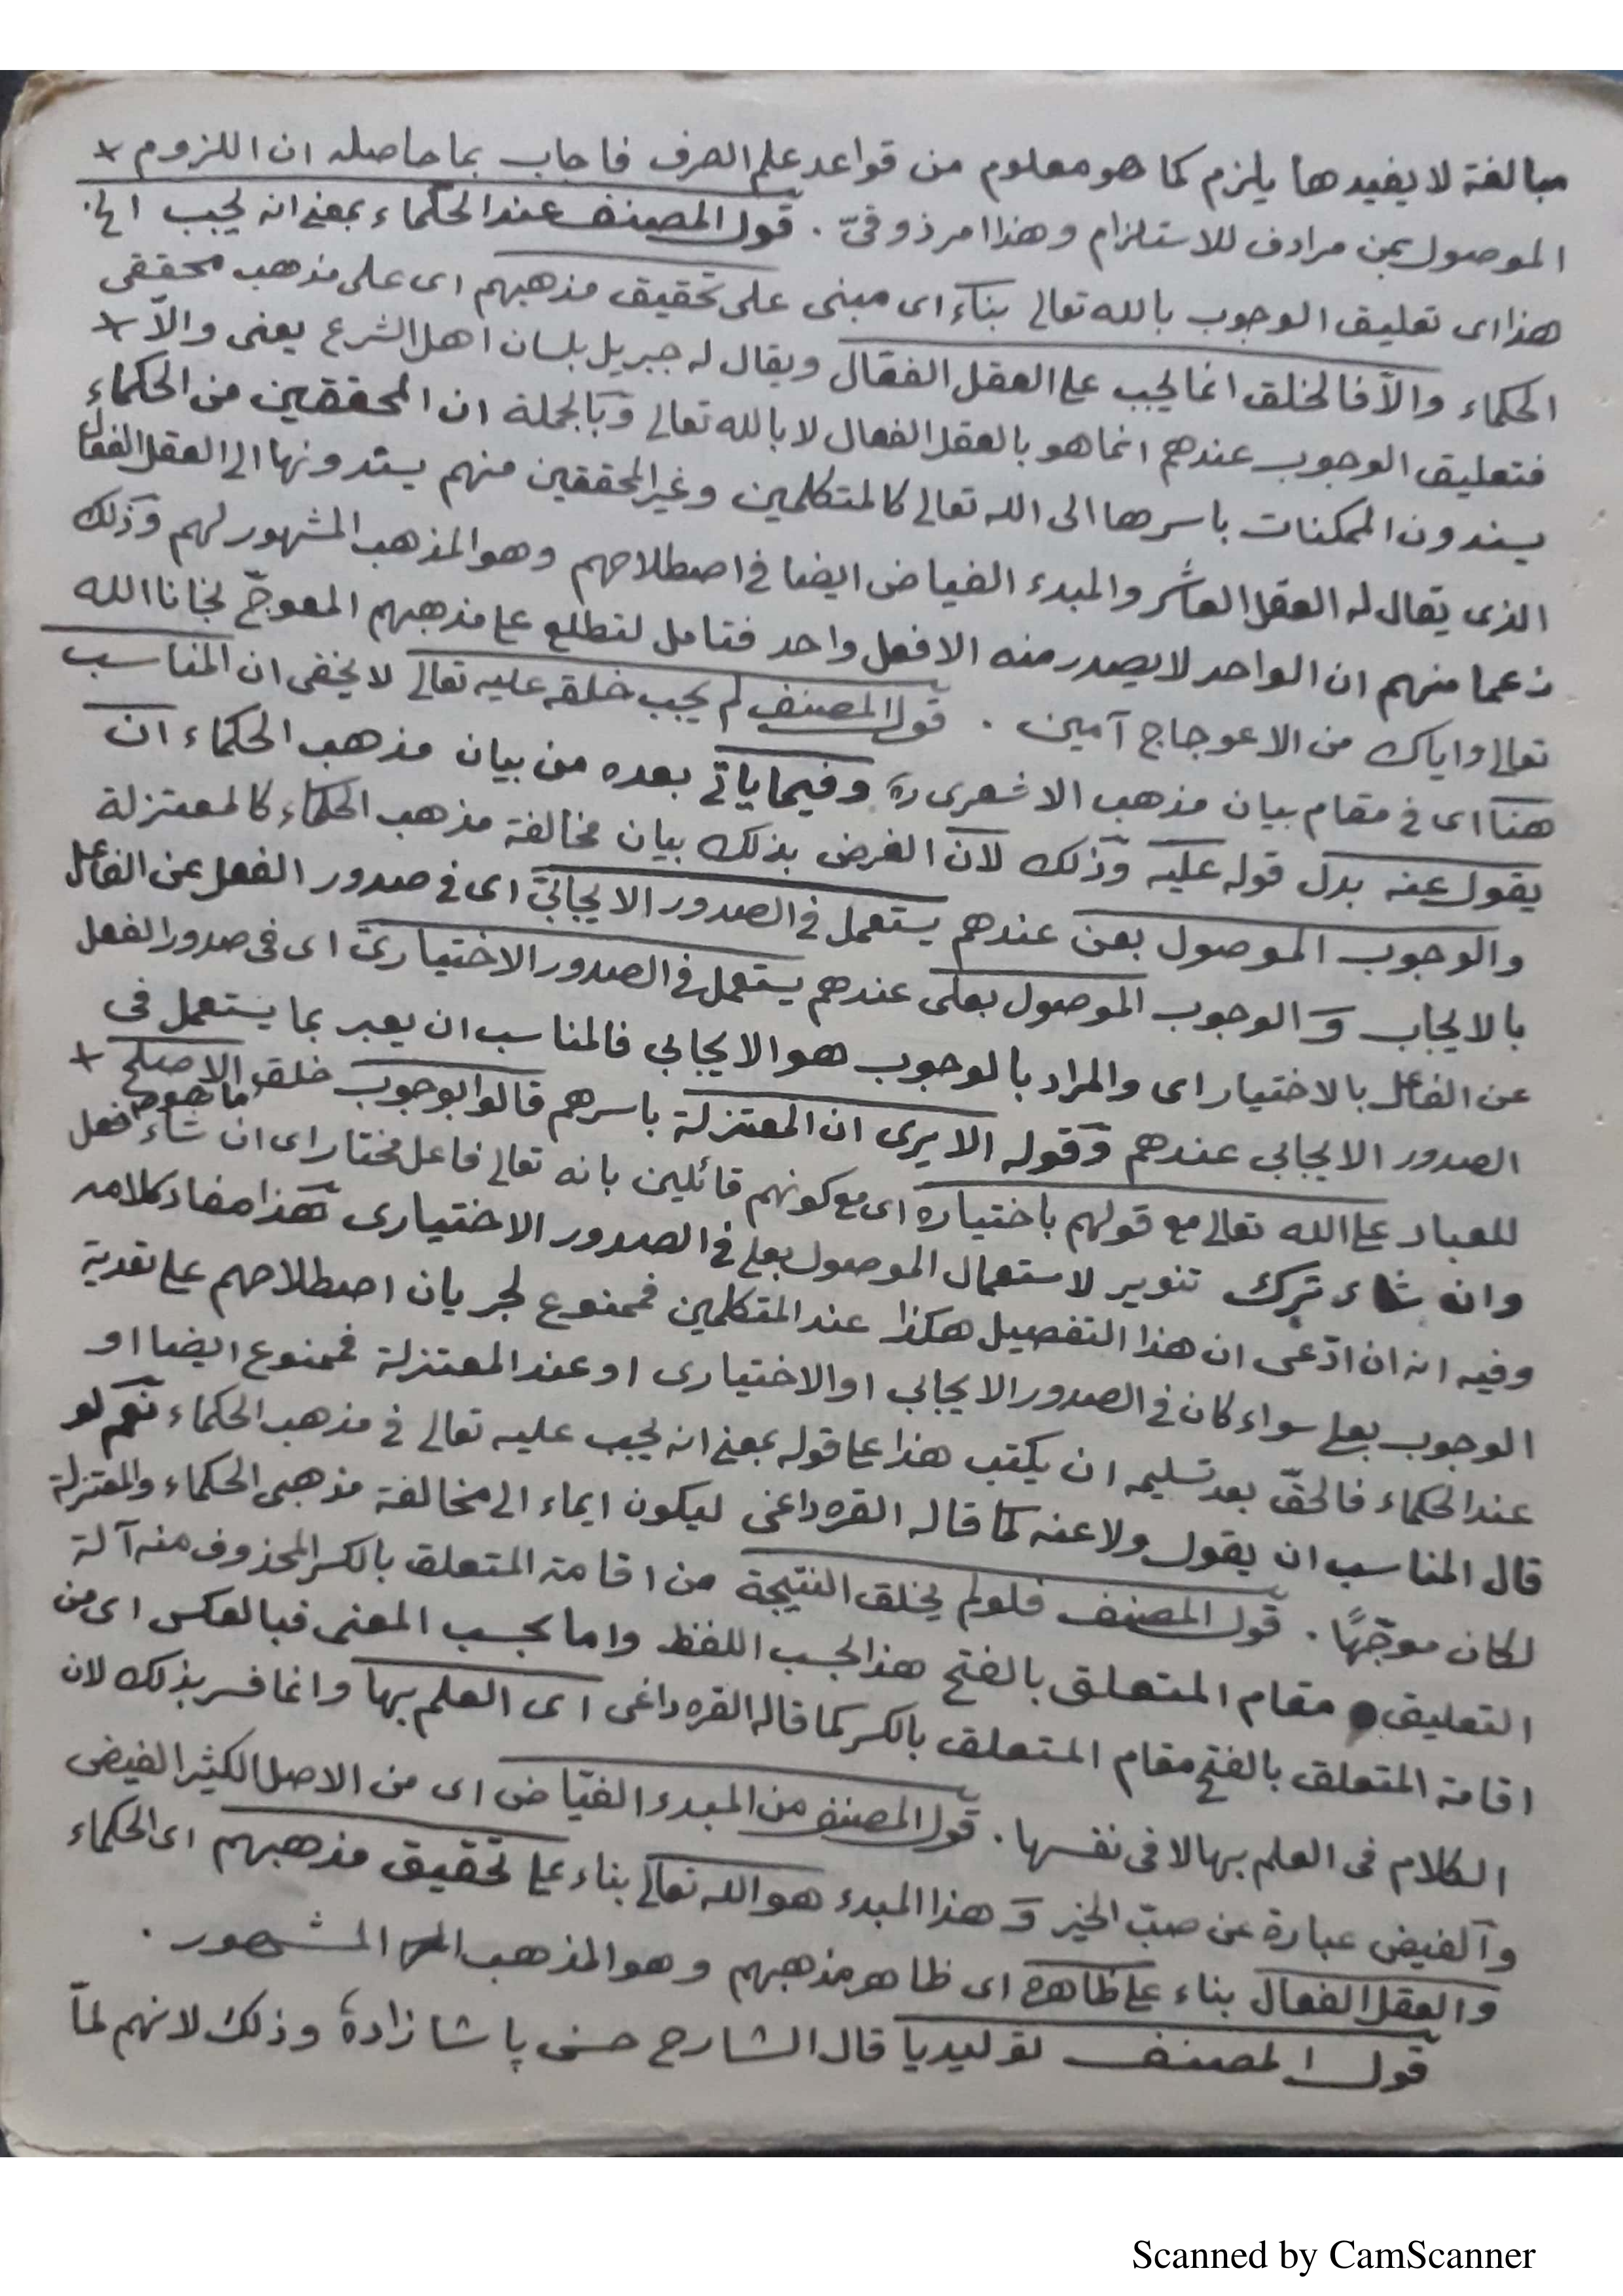 مبالغة لا يفيدها يلزم كما هو معلوم من قواعد علم الصرف فاجاب بما حاصله ان اللزوم
الموصول بمن مرادف للاستلزام وهذا امر ذوقيّ . قول المصنف عند الحكماء بمعنى انه يجب الخ.
هذا اى تعليق الوجوب بالله تعالى بناء اى مبنى على تحقيق مذهبهم اى على مذهب محققى
الحكماء والّا فالخلق انما يجب على العقل الفعّال ويقال له جبريل بلسان اهل الشرع يعنى والّا
فتعليق الوجوب عندهم انما هو بالعقل الفعال لا بالله تعالى وبالجملة ان المحققين من الحكماء
يسندون الممكنات باسرها الى الله تعالى كالمتكلمين وغير المحققين منهم يسندونها الى العقل الفعال
الذى يقال له العقل العاشر والمبدء الفياض ايضا فى اصطلاحهم وهو المذهب المشهور لهم وذلك
زعما منهم ان الواحد لا يصدر منه الا فعل واحد فتامل لتطلع على مذهبهم المعوجّ نجانا الله
تعالى واياك من الاعوجاج آمين . قول المصنف لم يجب خلقه عليه تعالى لا يخفى ان المناسب
هنا اى فى مقام بيان مذهب الاشعرى ره وفيما ياتى بعده من بيان مذهب الحكماء ان
يقول عنه بدل قوله عليه وذلك لان الغرض بذلك بيان مخالفة مذهب الحكماء كالمعتزلة
والوجوب الموصول بعن عندهم يستعمل فى الصدور الايجابىّ اى فى صدور الفعل عن الفاعل
بالايجاب و الوجوب الموصول بعلى عندهم يستعمل فى الصدور الاختيارىّ اى فى صدور الفعل
عن الفاعل بالاختيار اى والمراد بالوجوب هو الايجابي فالمناسب ان يعبر بما يستعمل فى
الصدور الايجابي عندهم وقوله الا يرى ان المعتزلة باسرهم قالوا بوجوب خلق ما هو الاصلح
للعباد على الله تعالى مع قولهم باختياره اى مع كونهم قائلين بانه تعالى فاعل مختار اى ان شاء فعل
وان شاء ترك تنوير لاستعمال الموصول بعلى فى الصدور الاختيارى هذا مفاد كلامه
وفيه انه ان ادّعى ان هذا التفصيل هكذا عند المتكلمين فممنوع لجريان اصطلاحهم على تعدية
الوجوب بعلى سواء كان فى الصدور الايجابي او الاختيارى او عند المعتزلة فممنوع ايضا او
عند الحكماء فالحقّ بعد تسليمه ان يكتب هذا على قوله بمعنى انه يجب عليه تعالى فى مذهب الحكماء نعم لو
قال المناسب ان يقول ولا عنه كما قاله القره داغى ليكون ايماء الى مخالفة مذهبى الحكماء والمعتزلة
لكان موجّهًا . قول المصنف فلو لم يخلق النتيجة من اقامة المتعلق بالكسر المحذوف منه آلة
التعليق مقام المتعلق بالفتح هذا بحسب اللفظ واما بحسب المعنى فبالعكس اى من
اقامة المتعلق بالفتح مقام المتعلق بالكسر كما قاله القره داغى اى العلم بها وانما فسر بذلك لان
الكلام فى العلم بها لا فى نفسها . قول المصنف من المبدء الفيّاض اى من الاصل الكثير الفيض
والفيض عبارة عن صبّ الخير و هذا المبدء هو الله تعالى بناء على تحقيق مذهبهم اى الحكماء
والعقل الفعال بناء على ظاهره اى ظاهر مذهبهم وهو المذهب المشهور .
قول المصنف توليديا قال الشارح حسن پاشا زاده وذلك لانهم لمّا
Scanned by CamScanner